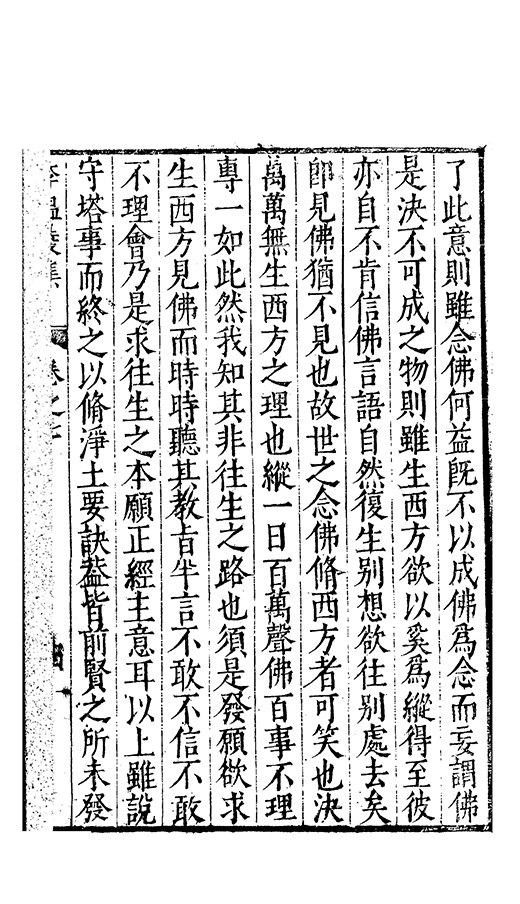 了此意則雖念佛何益旣不以成佛爲念而妄謂佛
是決不可成之物則雖生西方欲以奚爲縱得至彼
亦自不肯信佛言語自然復生别想欲往别處去矣
卽見佛猶不見也故世之念佛脩西方者可笑也決
萬萬無生西方之理也縱一日百萬聲佛百事不理
專一如此然我知其非往生之路也須是發願欲求
生西方見佛而時時聽其教旨半言不敢不信不敢
不理會乃是求往生之本願正經主意耳以上雖說
守塔事而終之以脩淨土要訣葢皆前賢之所未發
李溫陵集 卷之